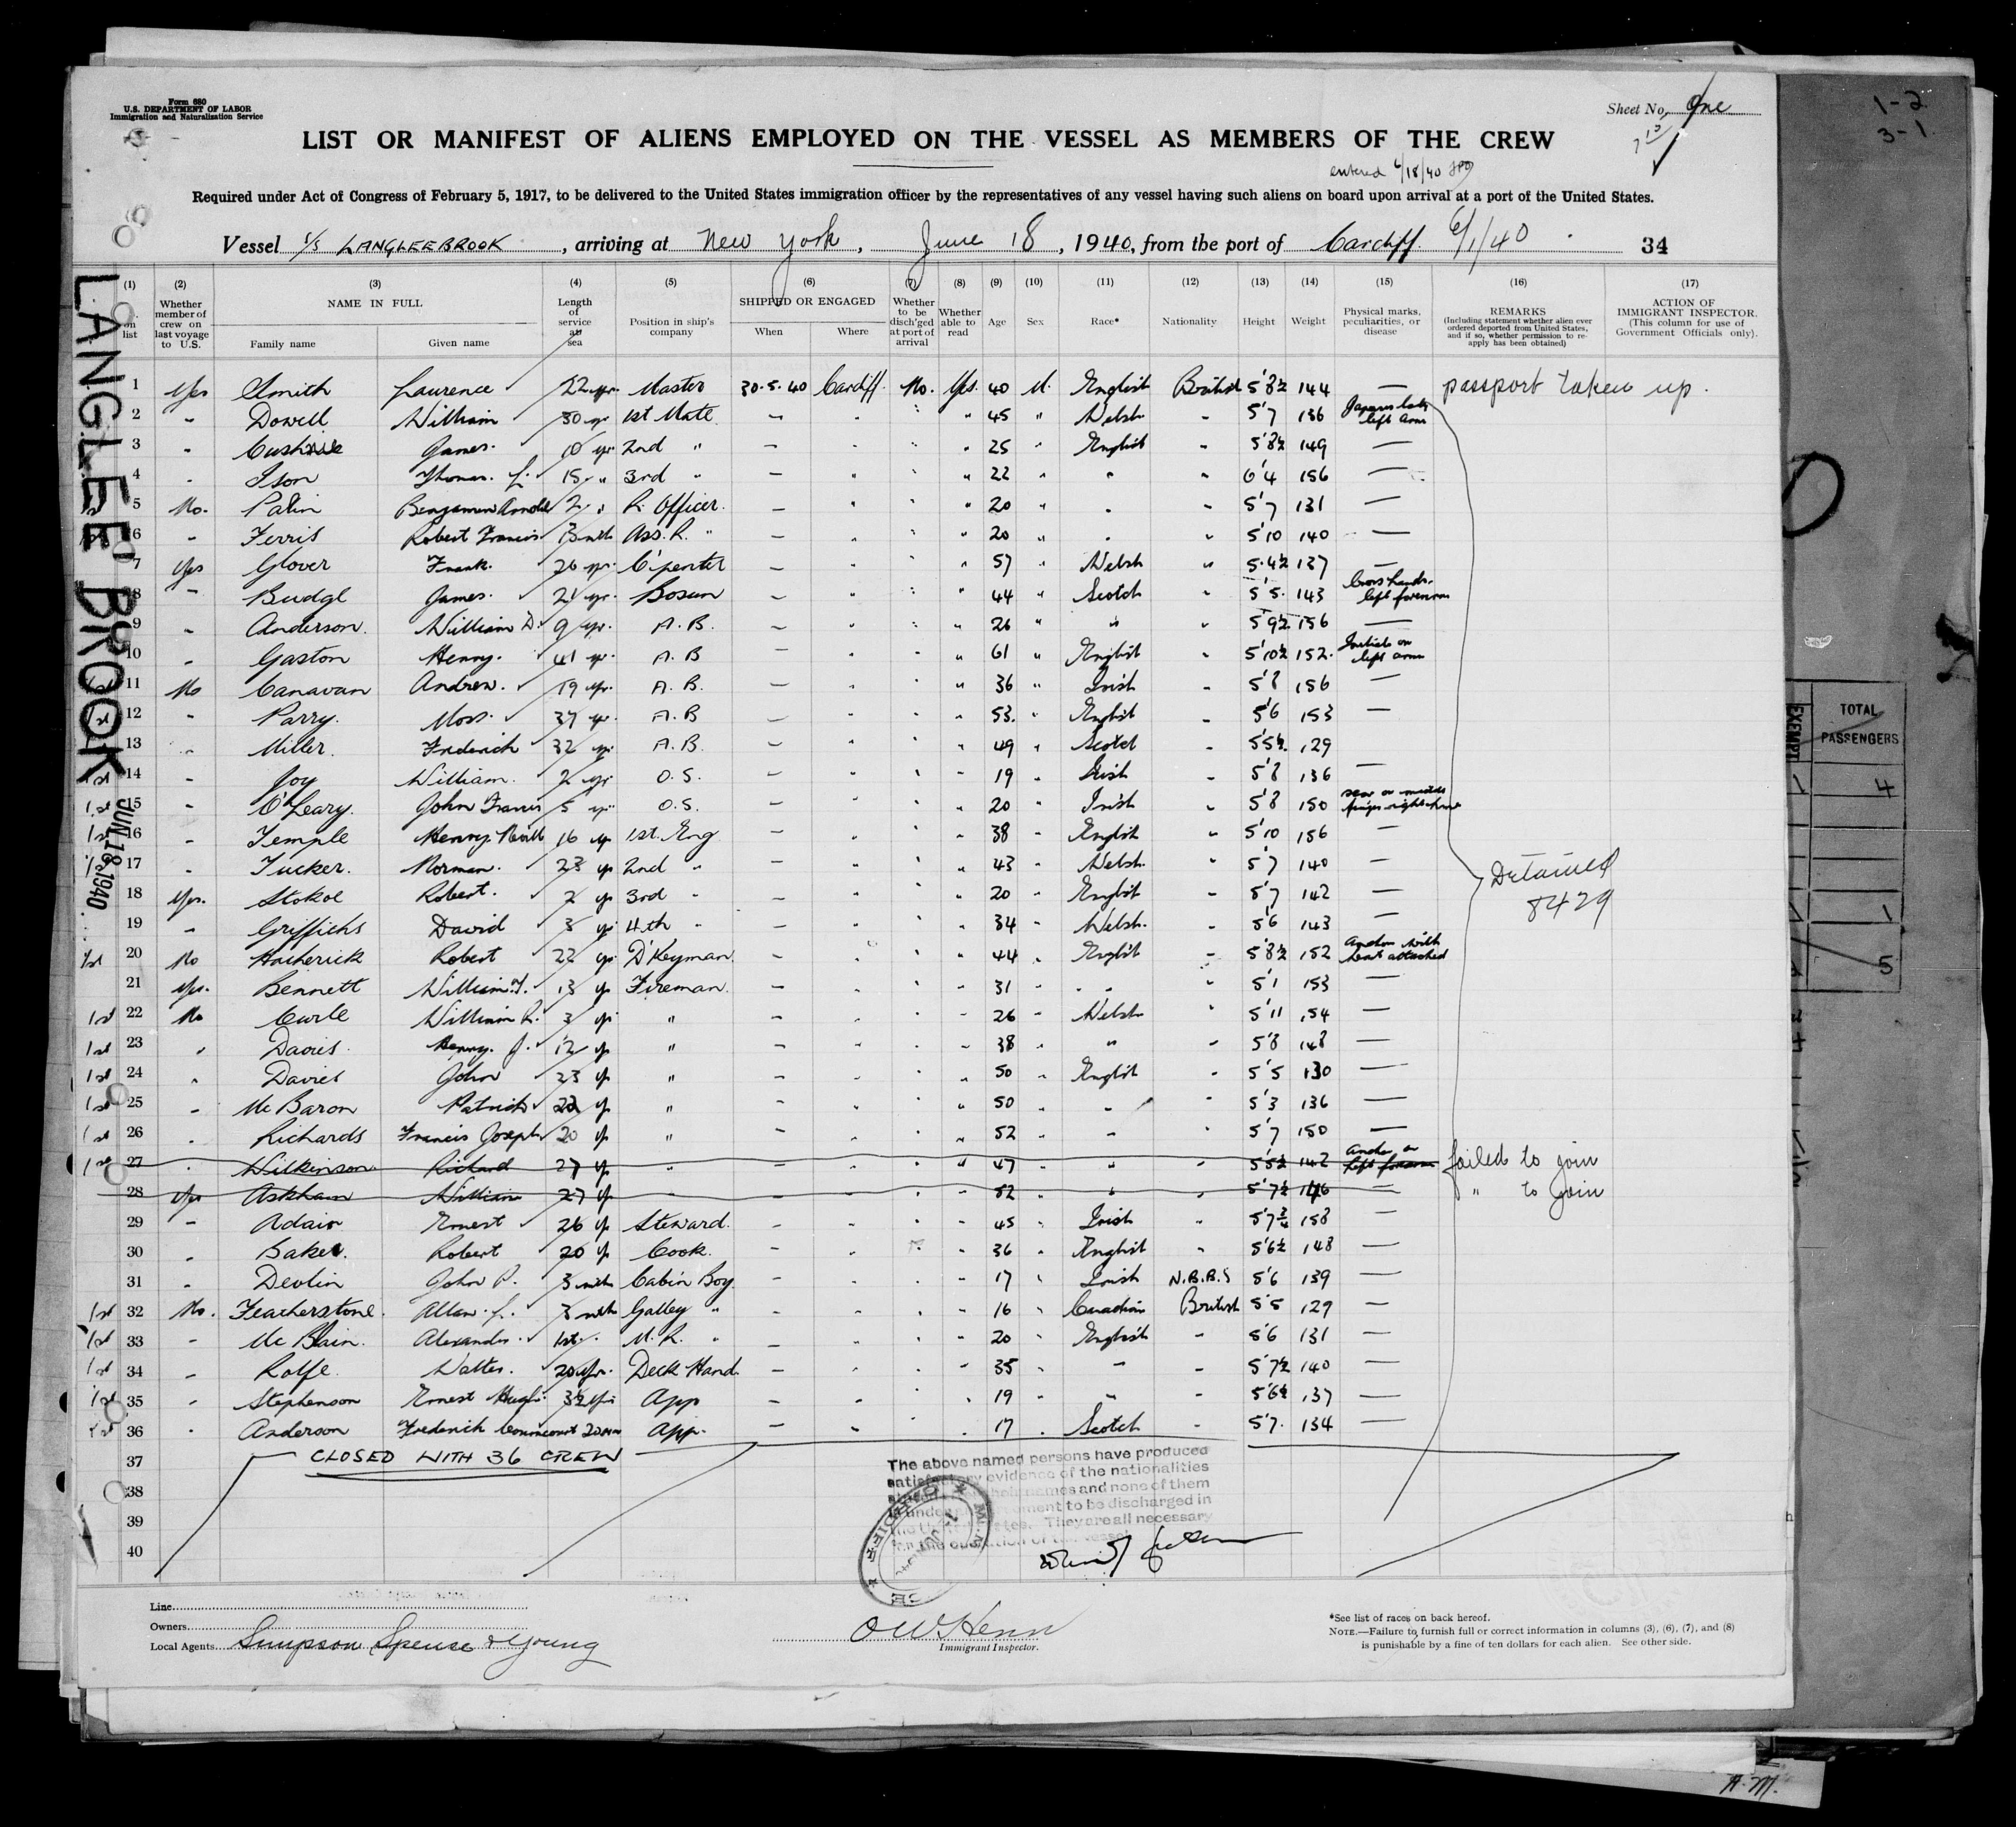 Form 680
U.S. DEPARTMENT OF LABOR
Immigration and Naturalization Service
Sheet No. One
1-2
3-1
LIST OR MANIFEST OF ALIENS EMPLOYED ON THE VESSEL AS MEMBERS OF THE CREW
entered 6/18/40
Required under Act of Congress of February 5, 1917, to be delivered to the United States immigration officer by the representatives of any vessel having such aliens on board upon arrival at a port of the United States.
Vessel S/S LANGLEEBROOK, arriving at New York, June 18, 1940, from the port of Cardiff. 6/1/40 34
LANGLEEBROOK
JUN 18 1940
(1) (2) (3) (4) (5) (6) (7) (8) (9) (10) (11) (12) (13) (14) (15) (16) (17)
on list
Whether member of crew on last voyage to U.S.
NAME IN FULL
Family name
Given name
Length of service at sea
Position in ship's company
SHIPPED OR ENGAGED
When
Where
Whether to be disch'ged at port of arrival
Whether able to read
Age
Sex
Race*
Nationality
Height
Weight
Physical marks, peculiarities, or disease
REMARKS
(Including statement whether alien ever ordered deported from United States, and if so, whether permission to reapply has been obtained)
ACTION OF IMMIGRANT INSPECTOR.
(This column for use of Government Officials only).
1 Yes Smith Laurence 22 yr. Master 30.5.40 Cardiff. No. Yes. 40 M. English British 5'8½ 144 — passport taken up.
2 " Dowell William 30 yr 1st Mate — " " " 45 " Welsh " 5'7 136 left arm
3 " James. 10 yr 2nd " — " " " 25 " English " 5'8½ 149 —
4 " Ison Thomas. L. 15 " 3rd " — " " " 22 " " " 6'4 156 —
5 No. Palin Benjamin Arnold 2 " R. Officer. — " " " 20 " " " 5'7 131 —
6 " Ferris Robert Francis 3 mth Ass. R. " — " " " 20 " " " 5'10 140 —
7 Yes Glover Frank. 26 yr. C'penter — " " " 57 " Welsh " 5.4½ 137 —
8 " Budge James. 21 yr. Bosun — " " " 44 " Scotch " 5'5. 143 left forearm
9 " Anderson. William D. 9 yr. A.B. — " " " 26 " " " 5'9½ 156 —
10 " Gaston Henry. 41 yr. A.B — " " " 61 " English " 5'10½ 152. Initials on left arm
1st 11 No Canavan Andrew. 19 yr. A.B. — " " " 36 " Irish " 5'8 156 —
1st 12 " Parry. Moss. 37 yr. A.B — " " " 53. " English " 5'6 153 —
13 " Miller. Frederick 32 yr A.B. — " " " 49 " Scotch " 5'5½ 129
1st 14 " Joy William. 2 yr O.S. — " " " 19 " Irish " 5'8 136 —
1st 15 " O'Leary. John Francis 5 yr O.S. — " " " 20 " Irish " 5'8 150 scar on middle finger right hand
1st 16 " Temple Henry 16 yr 1st. Eng — " " " 38 " English " 5'10 156 —
1st 17 " Tucker. Norman. 23 yr 2nd " — " " " 43 " Welsh " 5'7 140 —
18 Yes. Stokoe Robert. 2 yr 3rd " — " " " 20 " English " 5'7 142 —
19 " Griffiths David 3 yr 4th " — " " " 34 " Welsh. " 5'6 143 —
Detained 8429
1st 20 No Robert 22 yr D'Keyman. — " " " 44 " English " 5'8½ 152 Anchor with attached
21 Yes. Bennett William. T. 13 yr Fireman. — " " " 31 " " " 5'1 153
1st 22 No Curle William R. 3 yr " — " " " 26 " Welsh " 5'11 154 —
1st 23 " Davies. Henry. J. 12 yr " — " " " 38 " " 5'8 148 —
1st 24 " Davies John 23 yr " — " " " 50 " English " 5'5 130 —
1st 25 " Mc Baron Patrick 22 yr " — " " " 50 " " 5'3 136 —
1st 26 " Richards Francis Joseph 20 yr " — " " " 52 " " " 5'7 150 —
1st 27 " Wilkinson Richard 27 yr " — " " " 47 " " " 5'5½ 142 Anchor on left forearm failed to join
28 Yes Askham William 27 yr " — " " " 52 " " 5'7½ 146 — " to join
29 " Adair Ernest 26 yr Steward. — " " " 45 " Irish " 5'7¾ 158 —
30 " Baker. Robert 20 yr Cook. — " " " 36 " English " 5'6½ 148 —
31 " Devlin John P. 3 mth Cabin Boy. — " " " 17 " Irish N.B.B.S 5'6 139 —
1st 32 No. Featherstone. Allan. 3 mth Galley " — " " " 16 " Canadian British 5'5 129 —
1st 33 " Mc Blain. Alexander. 1st M.R. " — " " " 20 " English " 5'6 131 —
1st 34 " Rolfe. Walter. 20 yr. Deck Hand. — " " " 35 " " " 5'7½ 140 —
1st 35 " Stephenson Ernest Hugh. 3½ yr App — " " " 19 " " " 5'6½ 137 —
1st 36 " Anderson Frederick App. — " " " 17 " Scotch " 5'7. 134 —
37 CLOSED WITH 36 CREW
38
39
40
The above named persons have produced
satisfactory evidence of the nationalities
names and none of them
is under agreement to be discharged in
the United States. They are all necessary
for the operation of the vessel
CARDIFF
Line
Owners
Local Agents Simpson Spense & Young
Immigrant Inspector.
*See list of races on back hereof.
NOTE.—Failure to furnish full or correct information in columns (3), (6), (7), and (8)
is punishable by a fine of ten dollars for each alien. See other side.
EXEMPT
TOTAL PASSENGERS
1 4
1
5
A.M.